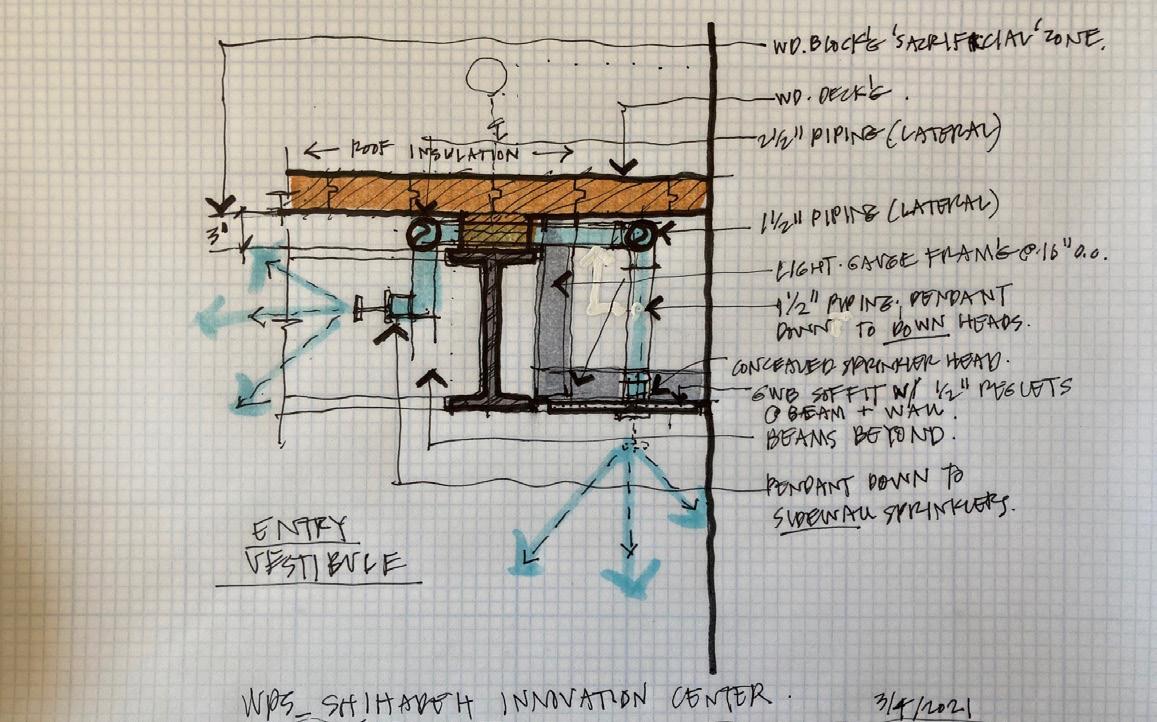 WD. BLOCK'G 'SACRIFICIAL' ZONE.
WD. DECK'G.
← ROOF INSULATION →
2 1/2" PIPING (LATERAL)
1 1/2" PIPING (LATERAL)
3"
LIGHT. GAUGE FRAM'G @ 16" O.C.
1 1/2" PIPING; PENDANT
DOWN TO DOWN HEADS.
CONCEALED SPRINKLER HEAD.
GWB SOFFIT W/ 1/2" REGLETS
@ BEAM + WALL.
BEAMS BEYOND.
PENDANT DOWN TO
SIDEWALL SPRINKLERS.
ENTRY
VESTIBULE
WPS_SHIHADEH INNOVATION CENTER.
3/4/2021